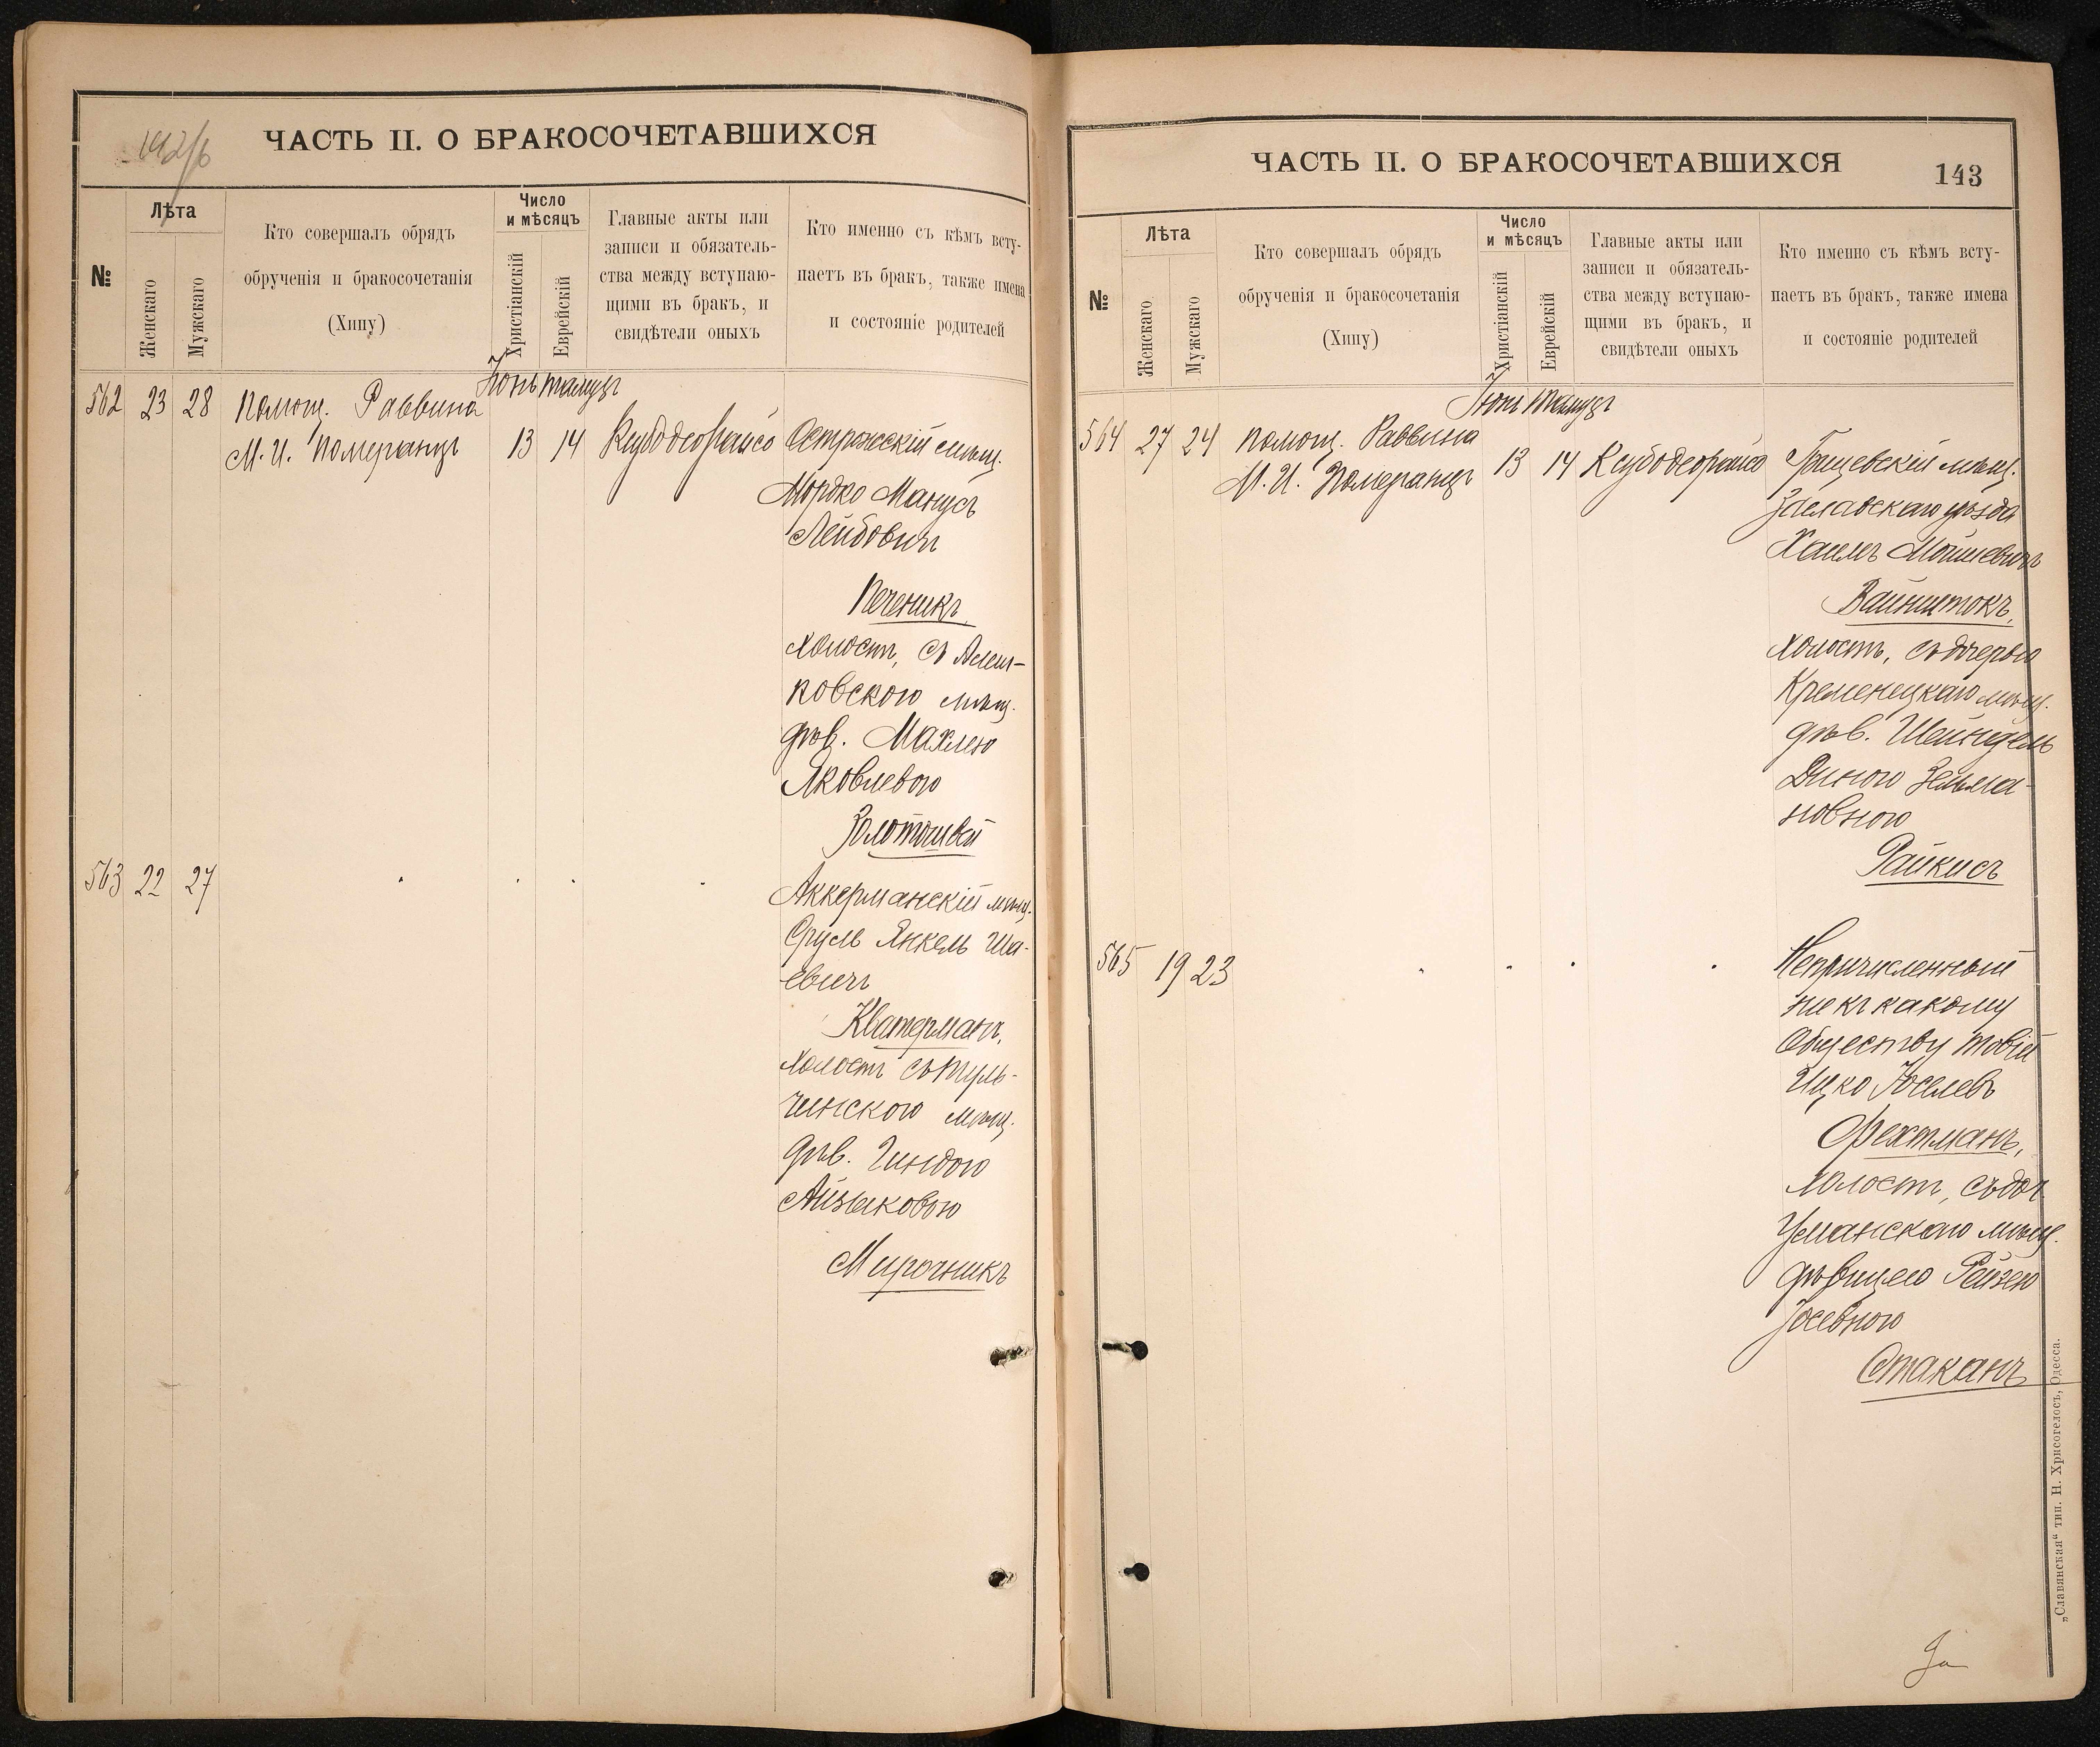 142/б
ЧАСТЬ II. О БРАКОСОЧЕТАВШИХСЯ
№
Лѣта
Женскаго
Мужскаго
Кто совершалъ обрядъ
обрученія и бракосочетанія
(Хипу)
Число
и мѣсяцъ
Христіанскій
Еврейскій
Главные акты или
записи и обязатель-
ства между вступаю-
щими въ бракъ, и
свидѣтели оныхъ
Кто именно съ кѣмъ всту-
паетъ въ бракъ, также имена
и состояніе родителей
Іюнь Тамузъ
562 23 28 Помощ. Раввина
М. И. Померанцъ 13 14 Острожскій мѣщ.
Мордко Манусъ
Лейбовичъ
Печеникъ,
холостъ, съ
ковскою мѣщ.
дѣв. Махлею
Яковлевою
Золотошвей
563 22 27 Аккерманскій мѣщ.
Сруль Янкель Ша-
евичъ
Кватерманъ,
холостъ съ Туль-
чинскою мѣщ.
дѣв. Гиндою
Айзыковою
Мирочникъ
ЧАСТЬ II. О БРАКОСОЧЕТАВШИХСЯ
143
№
Лѣта
Женскаго
Мужскаго
Кто совершалъ обрядъ
обрученія и бракосочетанія
(Хипу)
Число
и мѣсяцъ
Христіанскій
Еврейскій
Главные акты или
записи и обязатель-
ства между вступаю-
щими въ бракъ, и
свидѣтели оныхъ
Кто именно съ кѣмъ всту-
паетъ въ бракъ, также имена
и состояніе родителей
Іюнь Тамузъ
564 27 24 Помощ. Раввина
М. И. Померанцъ 13 14 Грицевскій мѣщ.
Заславскаго уѣзда
Хаимъ Мошкевичъ
Вайнштокъ,
холостъ, съ дочерью
Кременецкаго мѣщ.
дѣв. Шейндель
Диною Зельма-
новною
Райкисъ
565 19 23 Непричисленный
ни къ какому
Обществу Товій
Ицко Іоселевъ
Фрехтманъ,
холостъ, съ доч.
Уманскаго мѣщ.
дѣвицею Рейзею
Іосевною
Стаканъ
„Славянская“ тип. Н. Хрисогелосъ, Одесса.